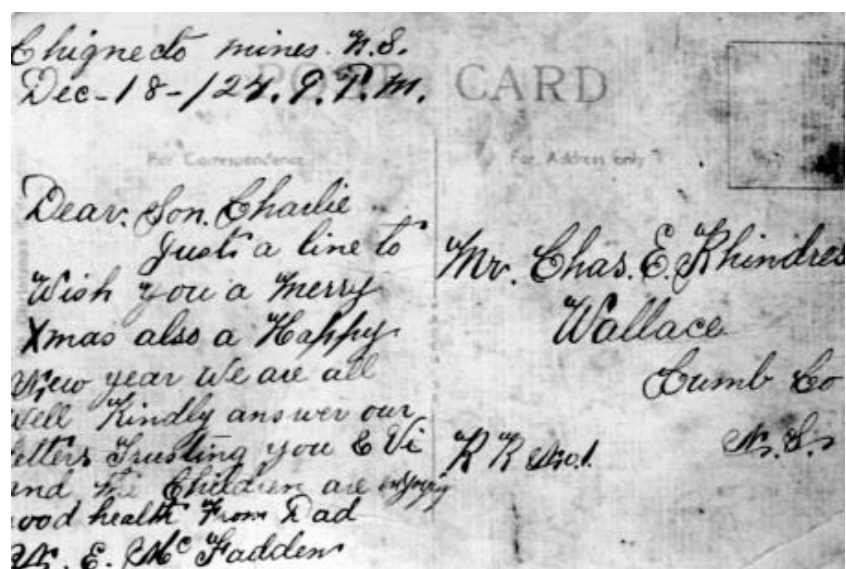 Chignecto mines. N.S.
Dec-18-/24. 9. P.M.
POST CARD
For Correspondence
For Address only
Dear. Son. Charlie
Just a line to
Wish you a Merry
Xmas also a Happy
New year We are all
Well Kindly answer our
letters Trusting you & Vi
and the Children are enjoying
good health From Dad
W. E. McFadden
Mr. Chas. E. Rhindres
Wallace
Cumb Co
N.S.
R R No.1.